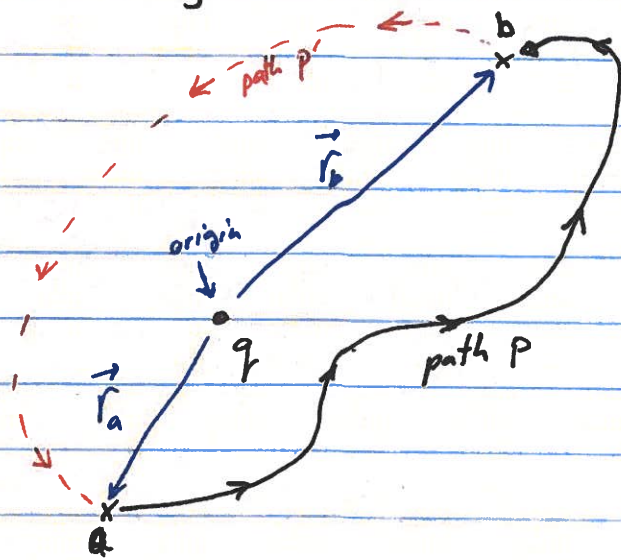 b
path P'
r⃗_b
origin
q
path P
r⃗_a
a